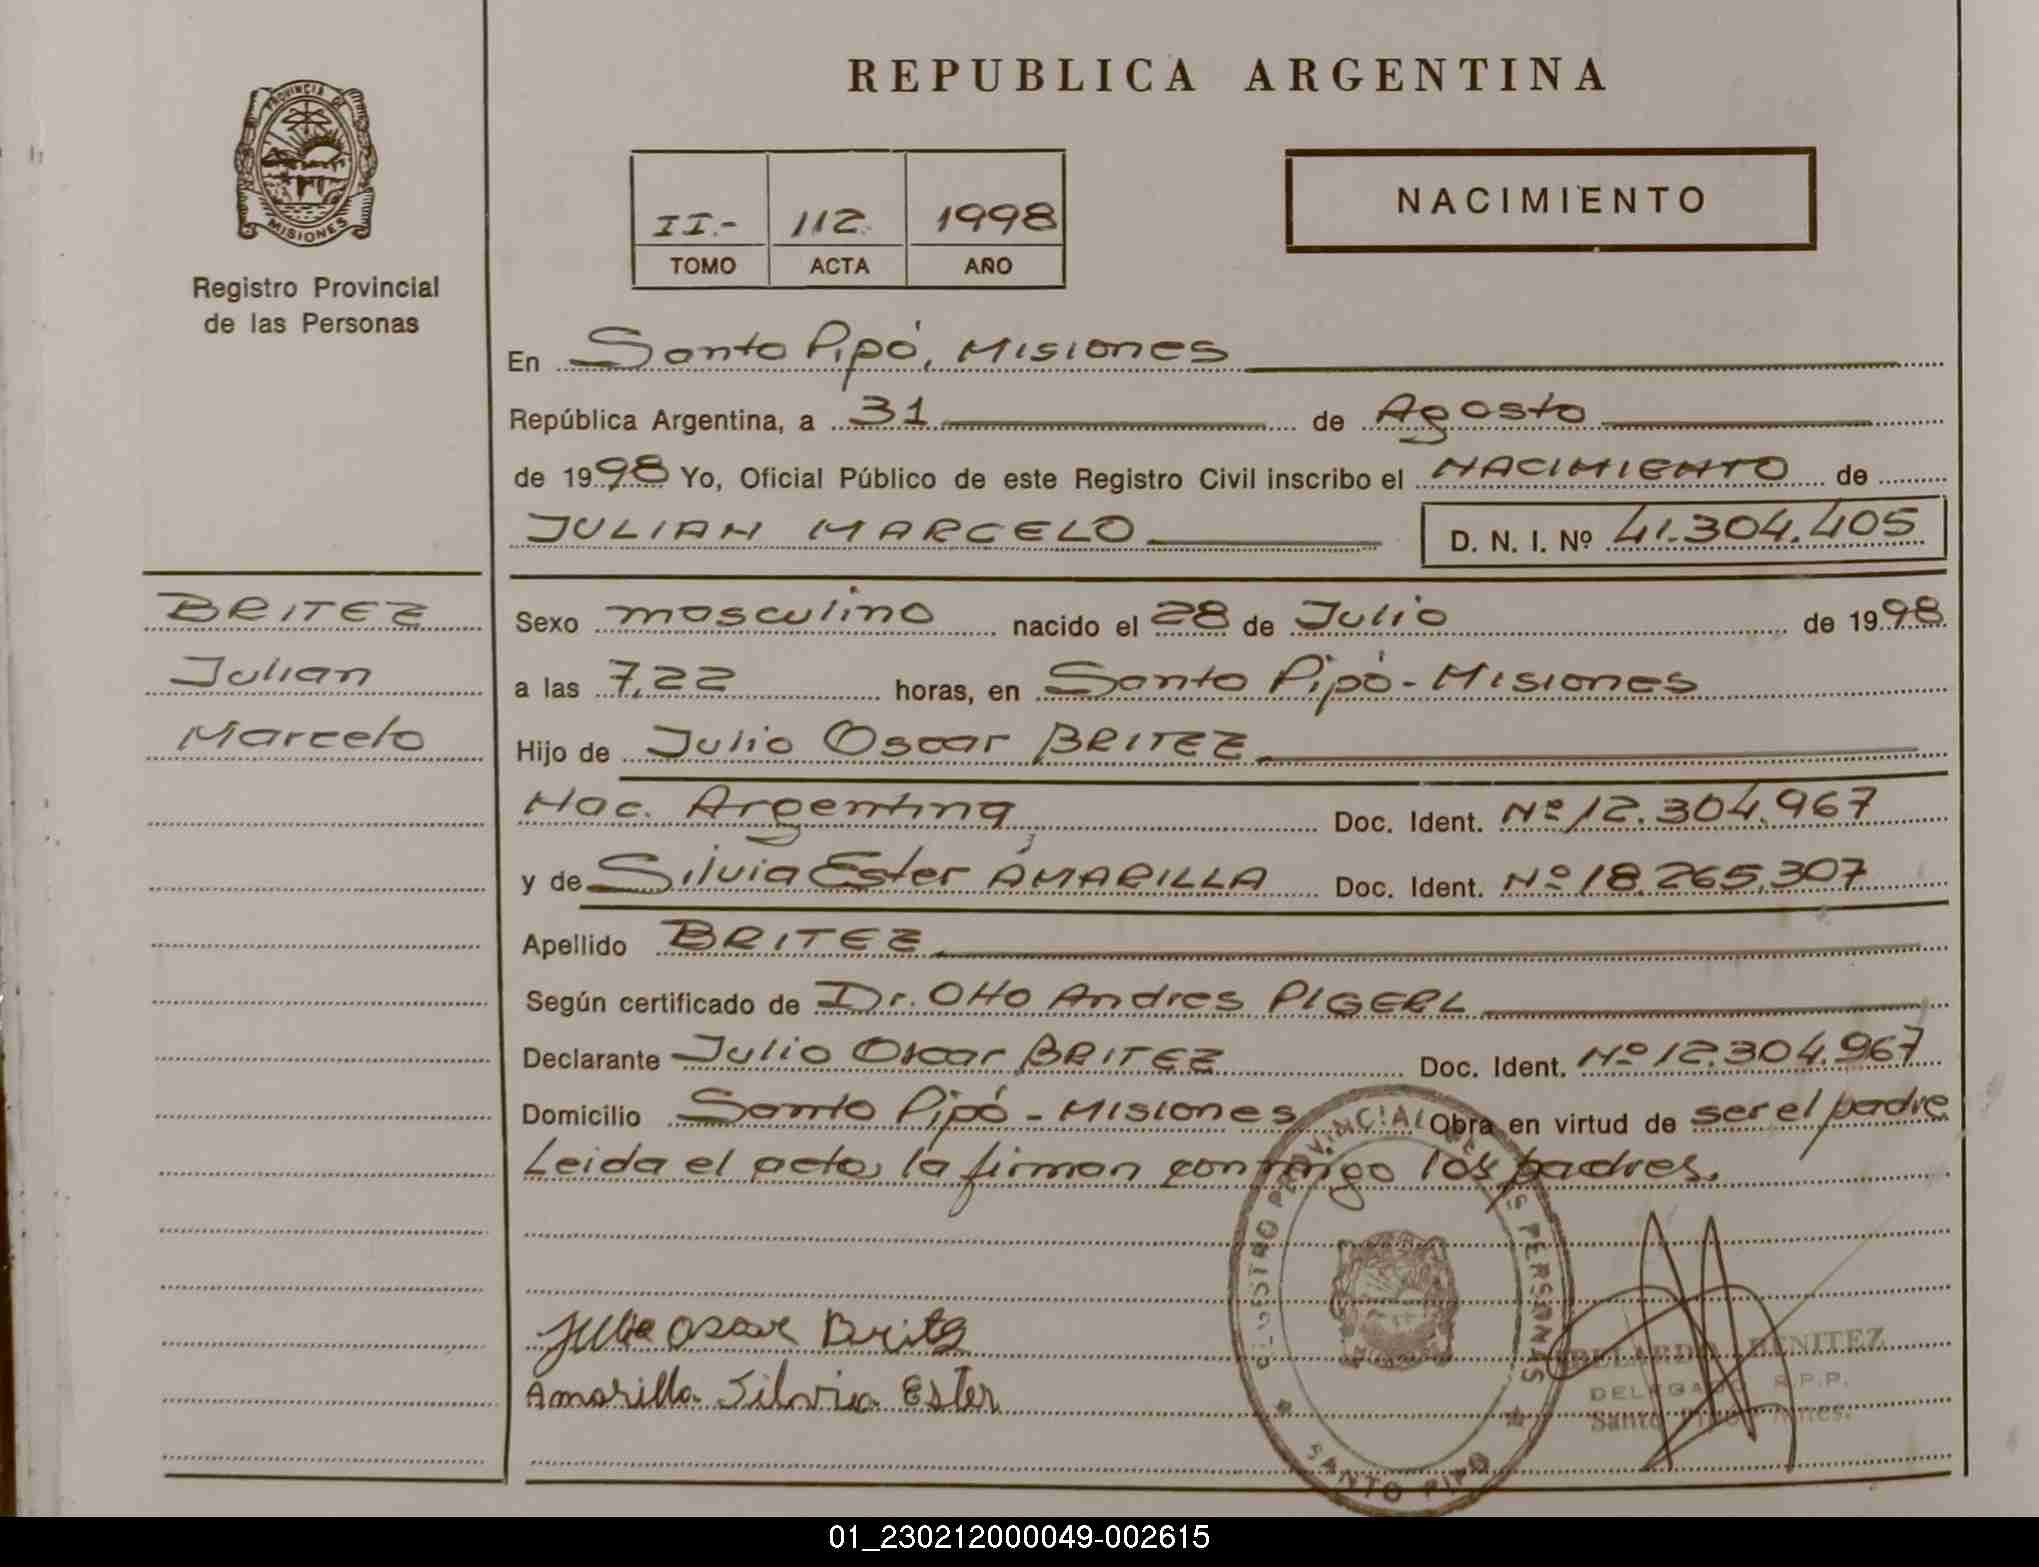 REPUBLICA ARGENTINA
PROVINCIA DE
MISIONES
Registro Provincial
de las Personas
II.- 112. 1998
TOMO ACTA AÑO
NACIMIENTO
En Santo Pipó, Misiones
República Argentina, a 31 de Agosto
de 1998 Yo, Oficial Público de este Registro Civil inscribo el NACIMIENTO de
JULIAN MARCELO D. N. I. Nº 41.304.405
BRITEZ
Julian
Marcelo
Sexo masculino nacido el 28 de Julio de 1998
a las 7,22 horas, en Santo Pipó - Misiones
Hijo de Julio Oscar BRITEZ
Nac. Argentina Doc. Ident. Nº 12.304.967
y de Silvia Ester AMARILLA Doc. Ident. Nº 18.265.307
Apellido BRITEZ
Según certificado de Dr. Otto Andres PIGERL
Declarante Julio Oscar BRITEZ Doc. Ident. Nº 12.304.967
Domicilio Santo Pipó - Misiones Obra en virtud de ser el padre
Leida el acta, la firman conmigo los padres.
REGISTRO PROVINCIAL DE LAS PERSONAS
SANTO PIPO
Julio Oscar Britez
Amarilla Silvia Ester
BENITEZ
DELEGADO R.P.P.
Santo Pipó
01_230212000049-002615